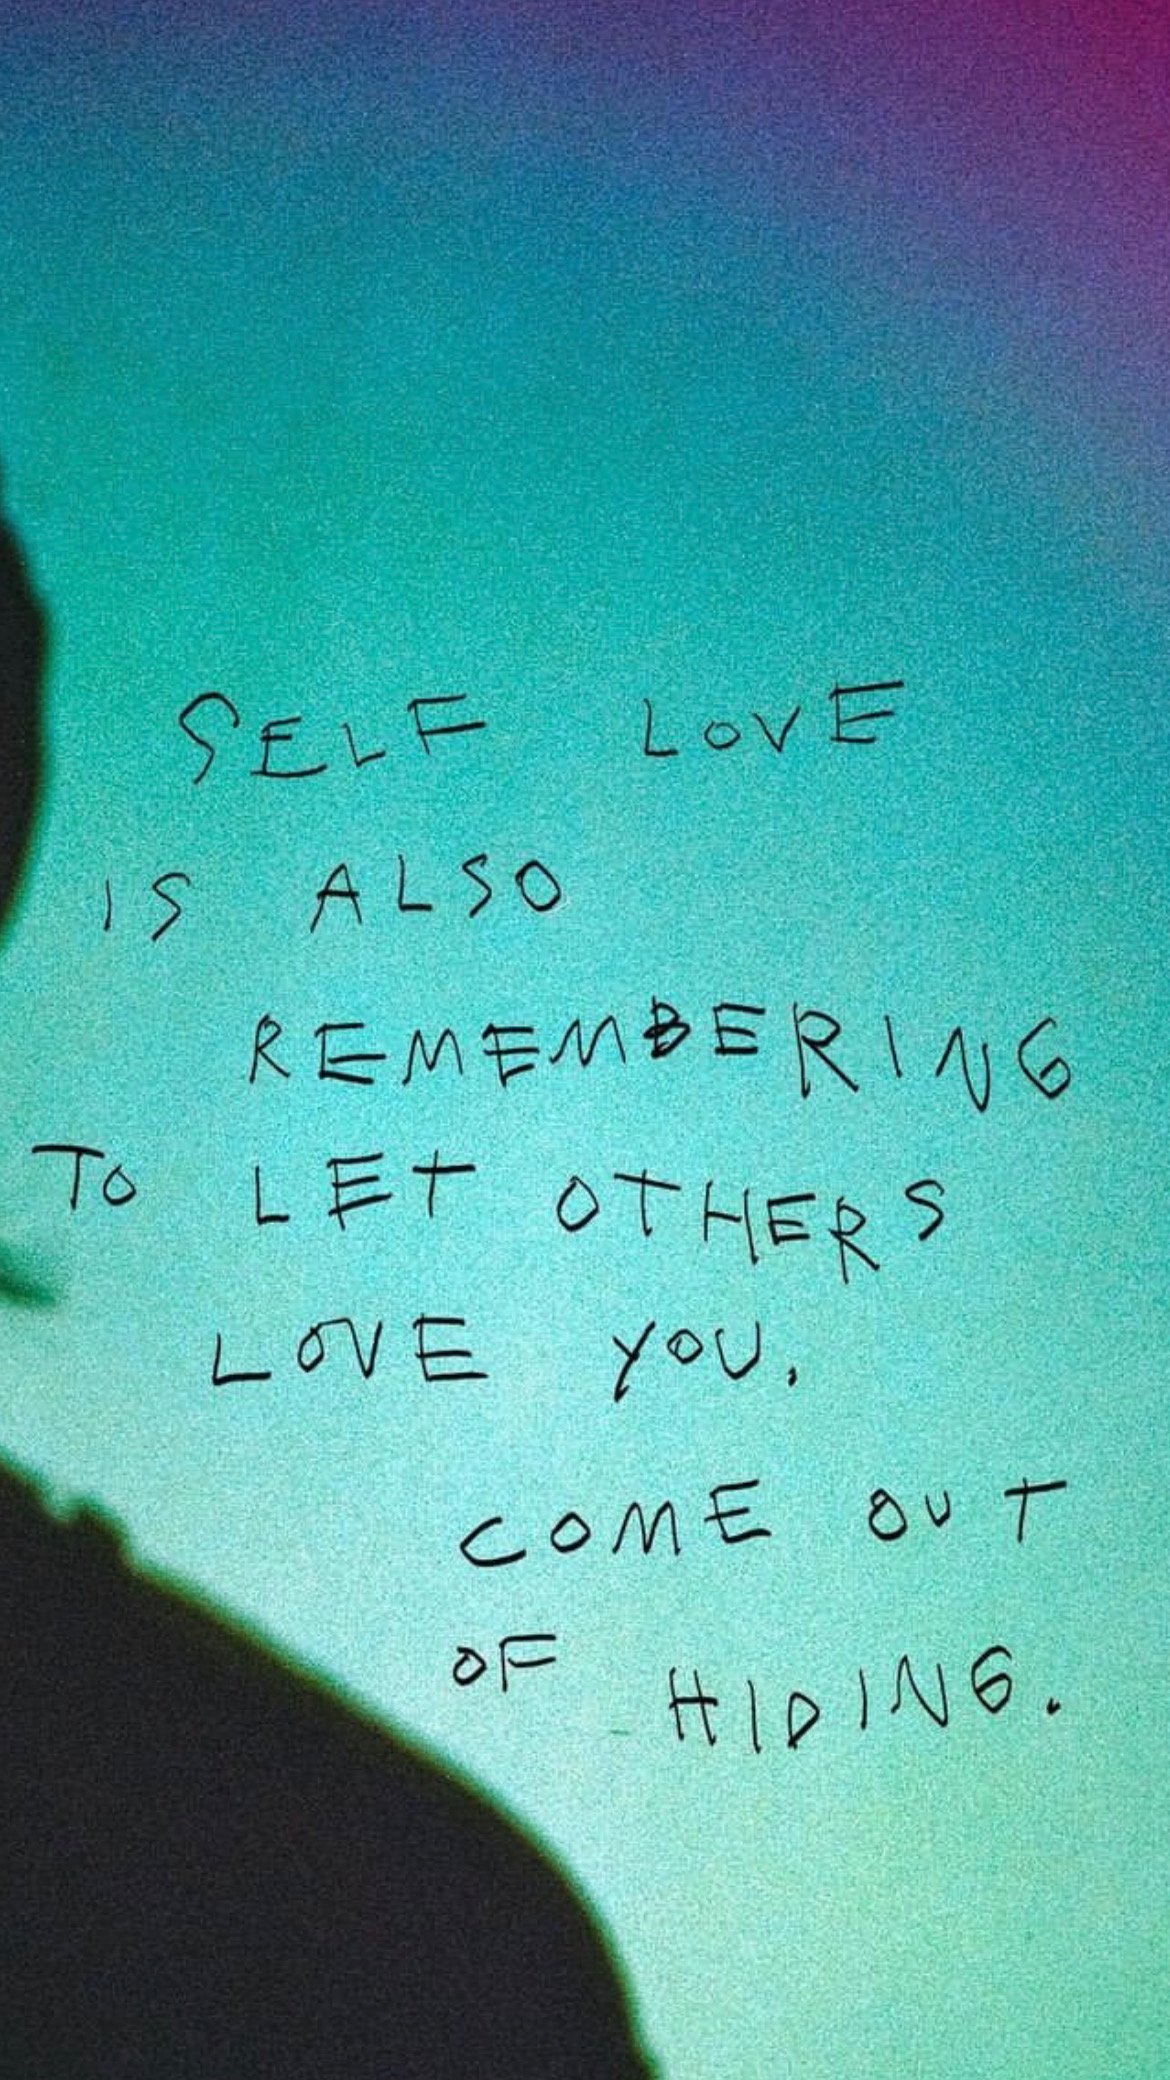 SELF LOVE
IS ALSO
REMEMBERING
TO LET OTHERS
LOVE YOU.
COME OUT
OF HIDING.